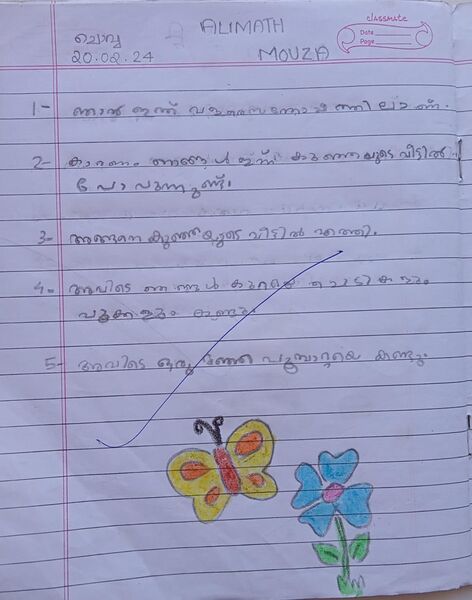 ALIMATH
classmate
ചൊവ്വ
Date
Page
20.02.24
MOUZA
1- ഞാൻ ഇന്ന് വളരെസന്തോഷത്തിലാണ്.
2- കാരണം ഞങ്ങൾ ഇന്ന് കുഞ്ഞയുടെ വീട്ടിൽ
പോവുന്നുണ്ട്.
3- അങ്ങനെ കുഞ്ഞയുടെ വീട്ടിൽ എത്തി.
4- അവിടെ ഞങ്ങൾ കുറേ ചെടികളും
പൂക്കളും കണ്ടു.
5- അവിടെ ഒരു മഞ്ഞ പൂമ്പാറ്റയെ കണ്ടു.